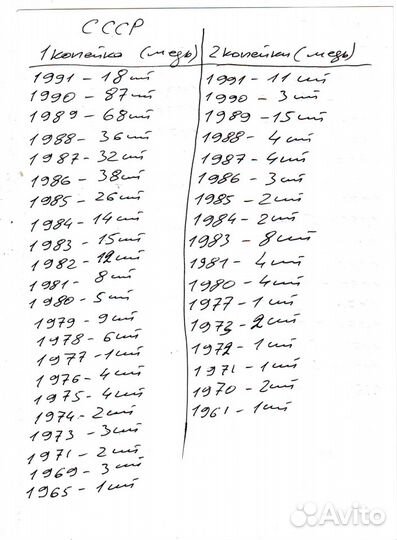 СССР
1 копейка (медь)
1991 - 18 шт
1990 - 87 шт
1989 - 68 шт
1988 - 36 шт
1987 - 32 шт
1986 - 38 шт
1985 - 26 шт
1984 - 14 шт
1983 - 15 шт
1982 - 12 шт
1981 - 8 шт
1980 - 5 шт
1979 - 9 шт
1978 - 6 шт
1977 - 1 шт
1976 - 4 шт
1975 - 4 шт
1974 - 2 шт
1973 - 3 шт
1971 - 2 шт
1969 - 3 шт
1965 - 1 шт
2 копейки (медь)
1991 - 11 шт
1990 - 3 шт
1989 - 15 шт
1988 - 4 шт
1987 - 4 шт
1986 - 3 шт
1985 - 2 шт
1984 - 2 шт
1983 - 8 шт
1981 - 4 шт
1980 - 4 шт
1977 - 1 шт
1973 - 2 шт
1972 - 1 шт
1971 - 1 шт
1970 - 2 шт
1961 - 1 шт
Avito